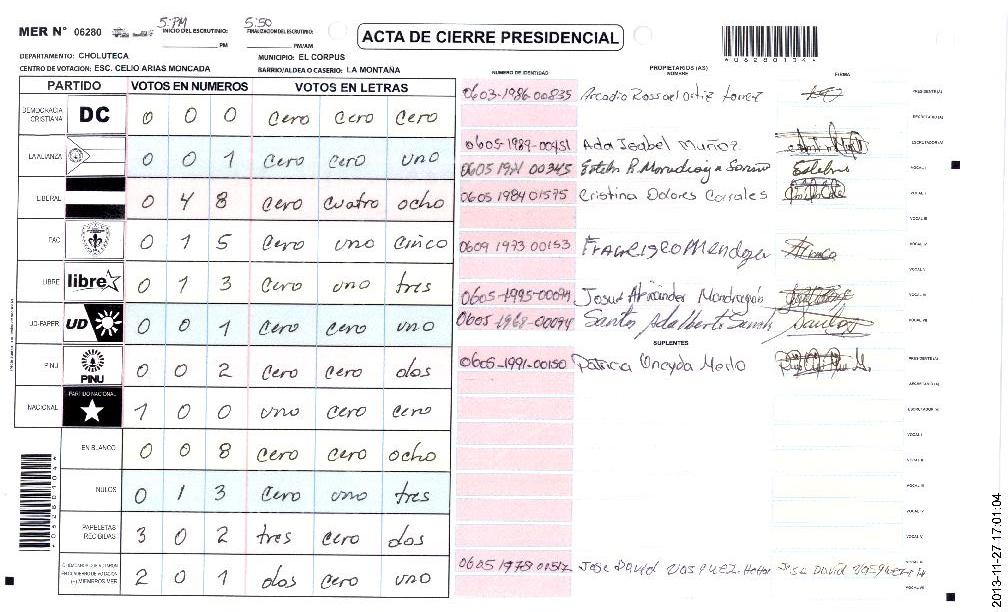 MER N° 06280
5:PM
INICIO DEL ESCRUTINIO:
PM
5:50
FINALIZACION DEL ESCRUTINIO:
PM/AM
ACTA DE CIERRE PRESIDENCIAL
DEPARTAMENTO: CHOLUTECA
MUNICIPIO: EL CORPUS
CENTRO DE VOTACION: ESC. CELIO ARIAS MONCADA
BARRIO/ALDEA O CASERIO: LA MONTAÑA
PARTIDO VOTOS EN NUMEROS VOTOS EN LETRAS
DEMOCRACIA CRISTIANA DC 0 0 0 cero cero cero
LA ALIANZA 0 0 1 cero cero uno
LIBERAL 0 4 8 cero cuatro ocho
PAC 0 1 5 cero uno cinco
LIBRE libre 0 1 3 cero uno tres
UD-FAPER UD 0 0 1 cero cero uno
PINU PINU 0 0 2 cero cero dos
NACIONAL PARTIDO NACIONAL 1 0 0 uno cero cero
EN BLANCO 0 0 8 cero cero ocho
NULOS 0 1 3 cero uno tres
PAPELETAS RECIBIDAS 3 0 2 tres cero dos
2 0 1 dos cero uno
NUMERO DE IDENTIDAD
PROPIETARIOS (AS)
NOMBRE
FIRMA
0603-1986-00835 Arcadio
PRESIDENTE(A)
SECRETARIO(A)
0605-1989-00451 Ada Isabel Muñoz
ESCRUTADOR(A)
Esteban
VOCAL I
0605 1984 01575 Cristina Dolores Corrales
VOCAL II
VOCAL III
0609 1973 00153 Francisco Mendoza
VOCAL IV
VOCAL V
0605-1995-00094 Josue Alexander Mondragón
VOCAL VI
0605-1968-00094 Santos Adalberto
VOCAL VII
SUPLENTES
0605-1991-00150 Patricia Oneyda Merlo
PRESIDENTE(A)
SECRETARIO(A)
ESCRUTADOR(A)
VOCAL I
VOCAL II
VOCAL III
VOCAL IV
VOCAL V
Jose David VASQUEZ
VOCAL VI
VOCAL VII
2013-11-27 17:01:04